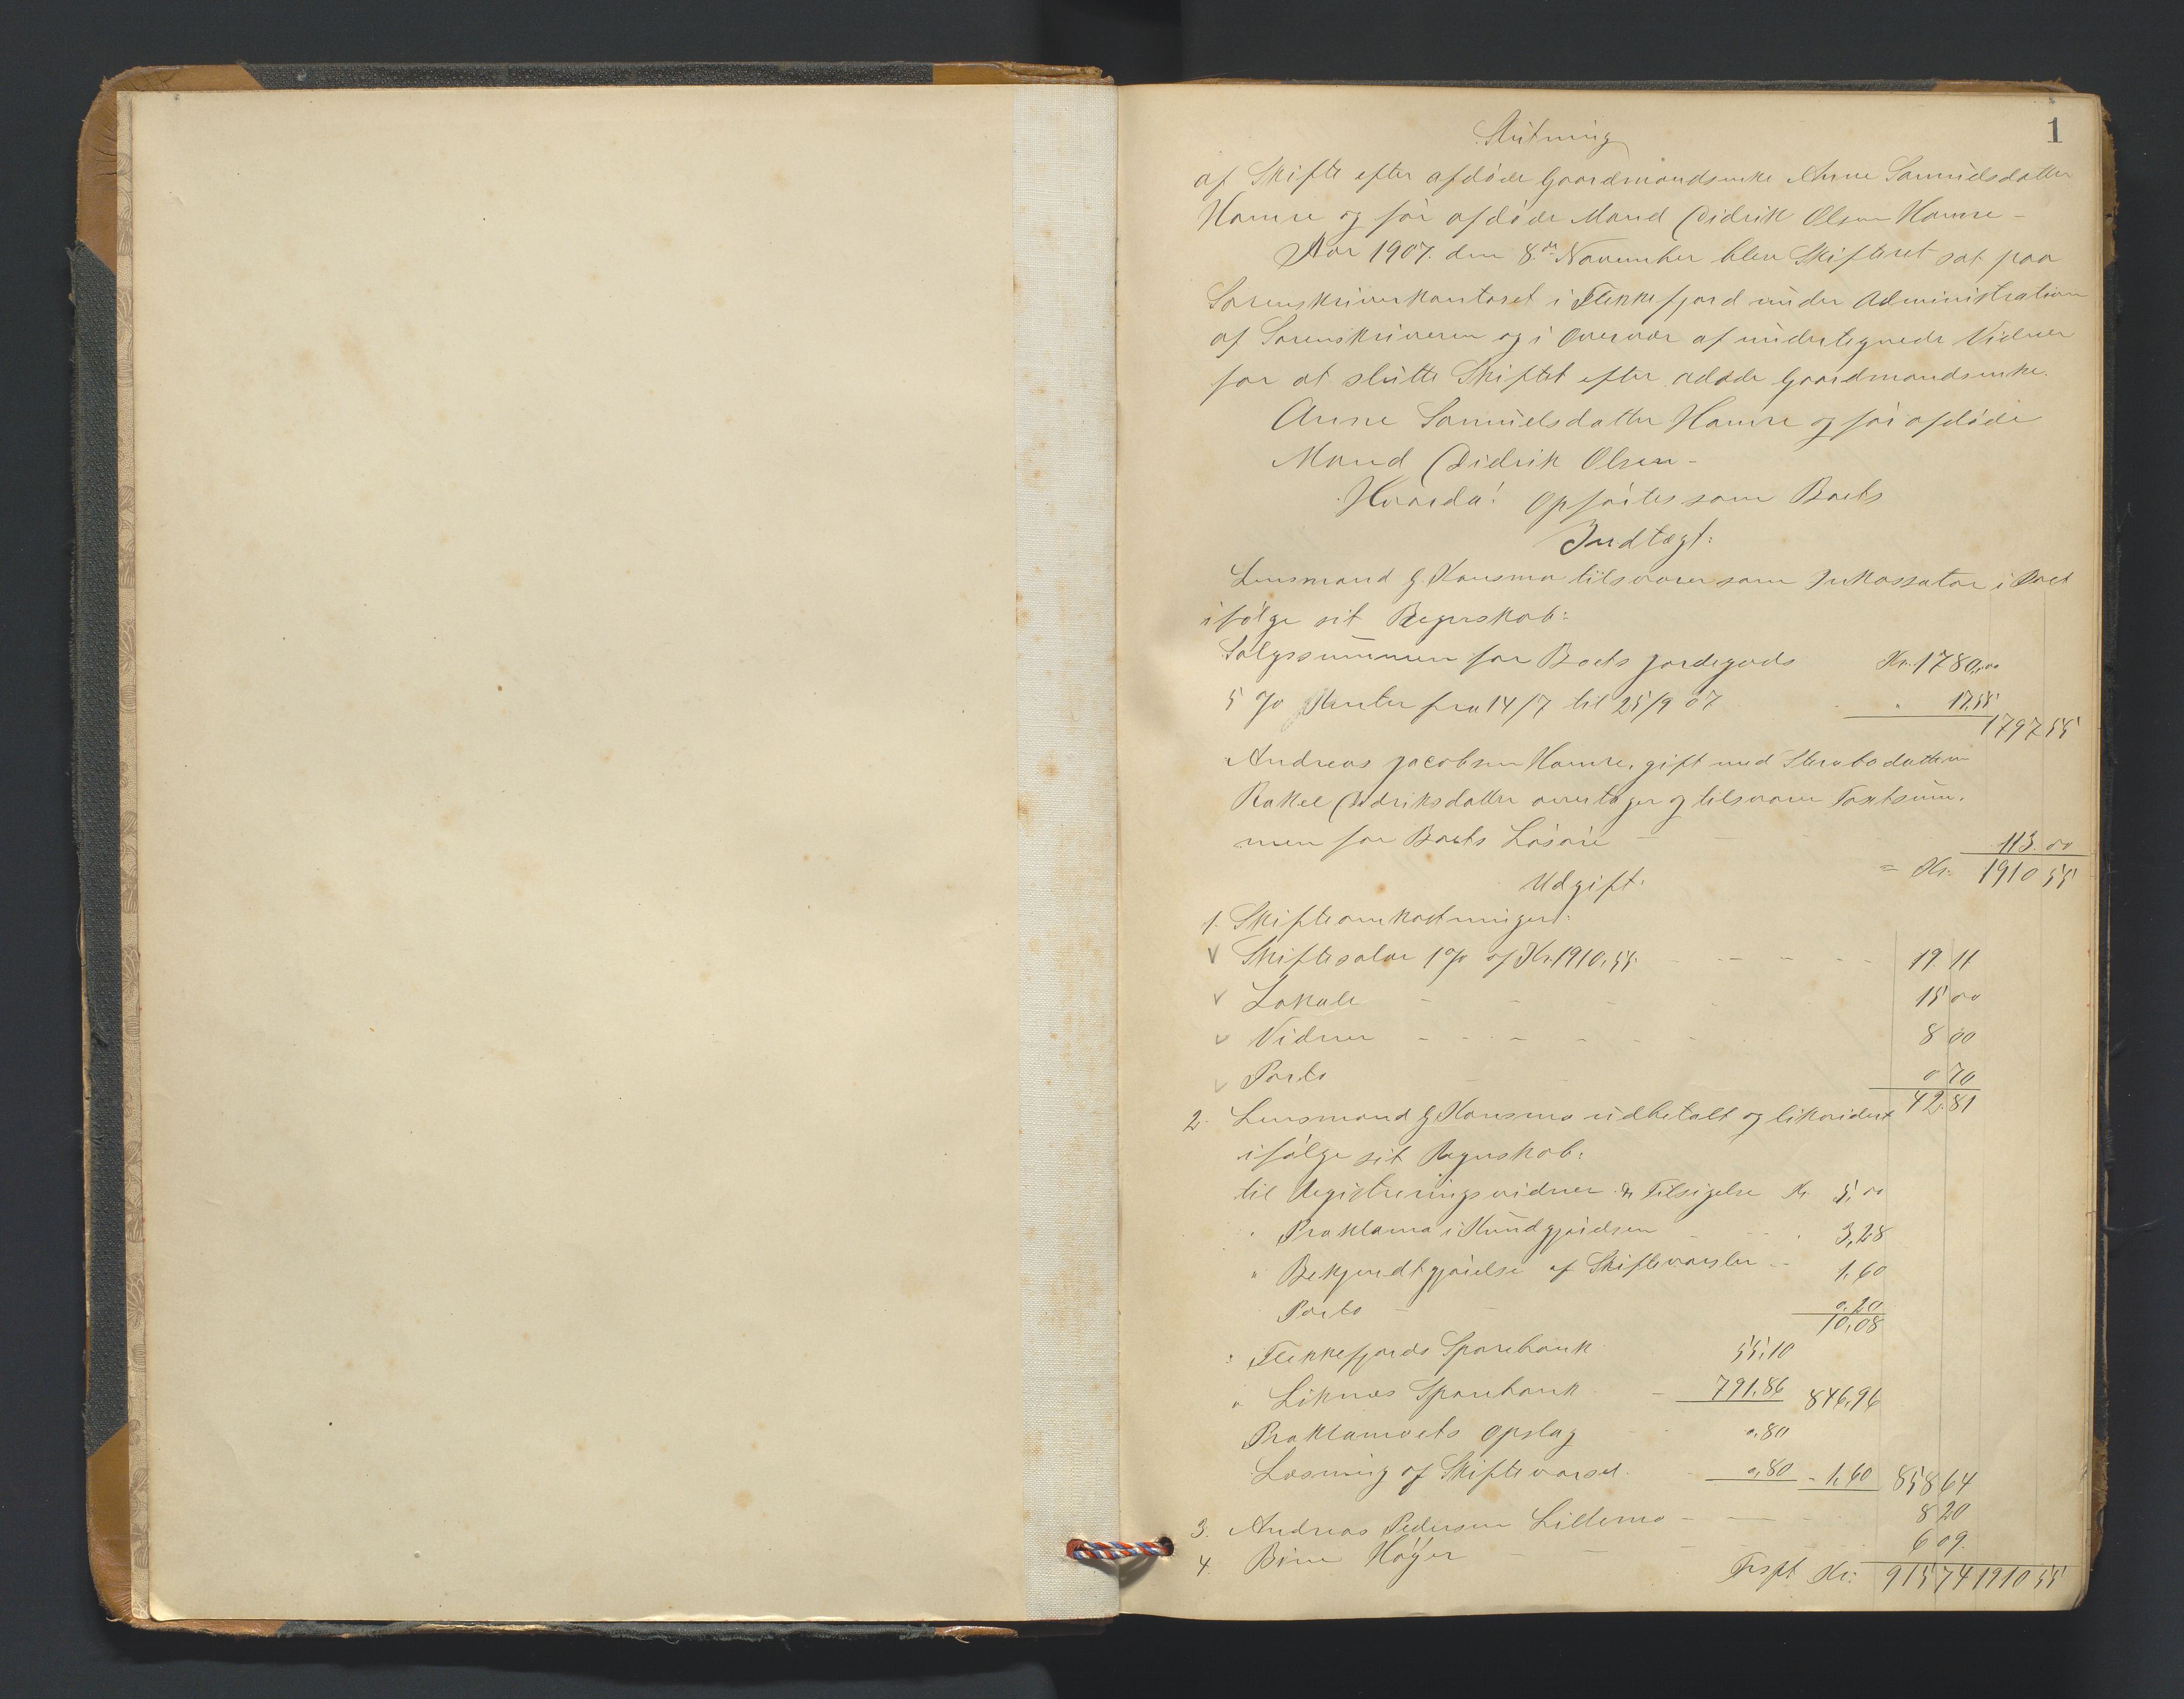 1
Slutning
af Skifte efter afdøde Gaardmandsenke Anne Samuelsdatter
Hamre og før afdøde Mand Didrik Olsen Hamre –
Aar 1907. den 8de November blev Skifteret sat paa
Sorenskriverkontoret i Flekkefjord under Administration
af Sorenskriveren og i Overvær af undertegnede Vidner
for at slutte Skiftet efter adøde Gaardmandsenke.
Anne Samuelsdatter Hamre og før afdøde
Mand Didrik Olsen –
Hvorda: Opførtes som Boets
Indtægt:
Lensmand G. Hansma tilsvarer som Inkassator i Boet
ifølge sit Regnskab:
Salgssummen for Boets Jordegods Kr. 1780,00
5 % Renter fra 14/7 til 25/9 07 " 17,55
1797 55
Andreas Jacobsen Hamre, gift med Sterbodatteren
Rakel Didriksdatter overtager og tilsvarer Taxtsum-
men for Boets Løsøre – 113.00
= Kr. 1910 55
Udgift:
1. Skifteomkostninger:
Skiftesalær 1 % af Kr. 1910,55 19 11
Lokale 15 00
Vidner 8 00
Porto 0 70
42 81
2. Lensmand G. Hansma udbetalt og likvideret
ifølge sit Regnskab:
til Registreringsvidner & Tilsigelse Kr. 5,00
" Proklama i Kundgjørelsen 3,28
" Bekjendtgjørelse af Skiftevarsler 1,60
Porto 0,20
10,08
" Flekkefjords Sparebank 55,10
" Liknes Sparebank 791,86 846,96
Proklamaets Opslag 0,80
Læsning af Skiftevarsel 0,80 – 1,60 858 64
3. Andreas Pedersen Lillemo – 8 20
4. Bine Høyer 6 09.
Trspt Kr: 915 74 1910 55